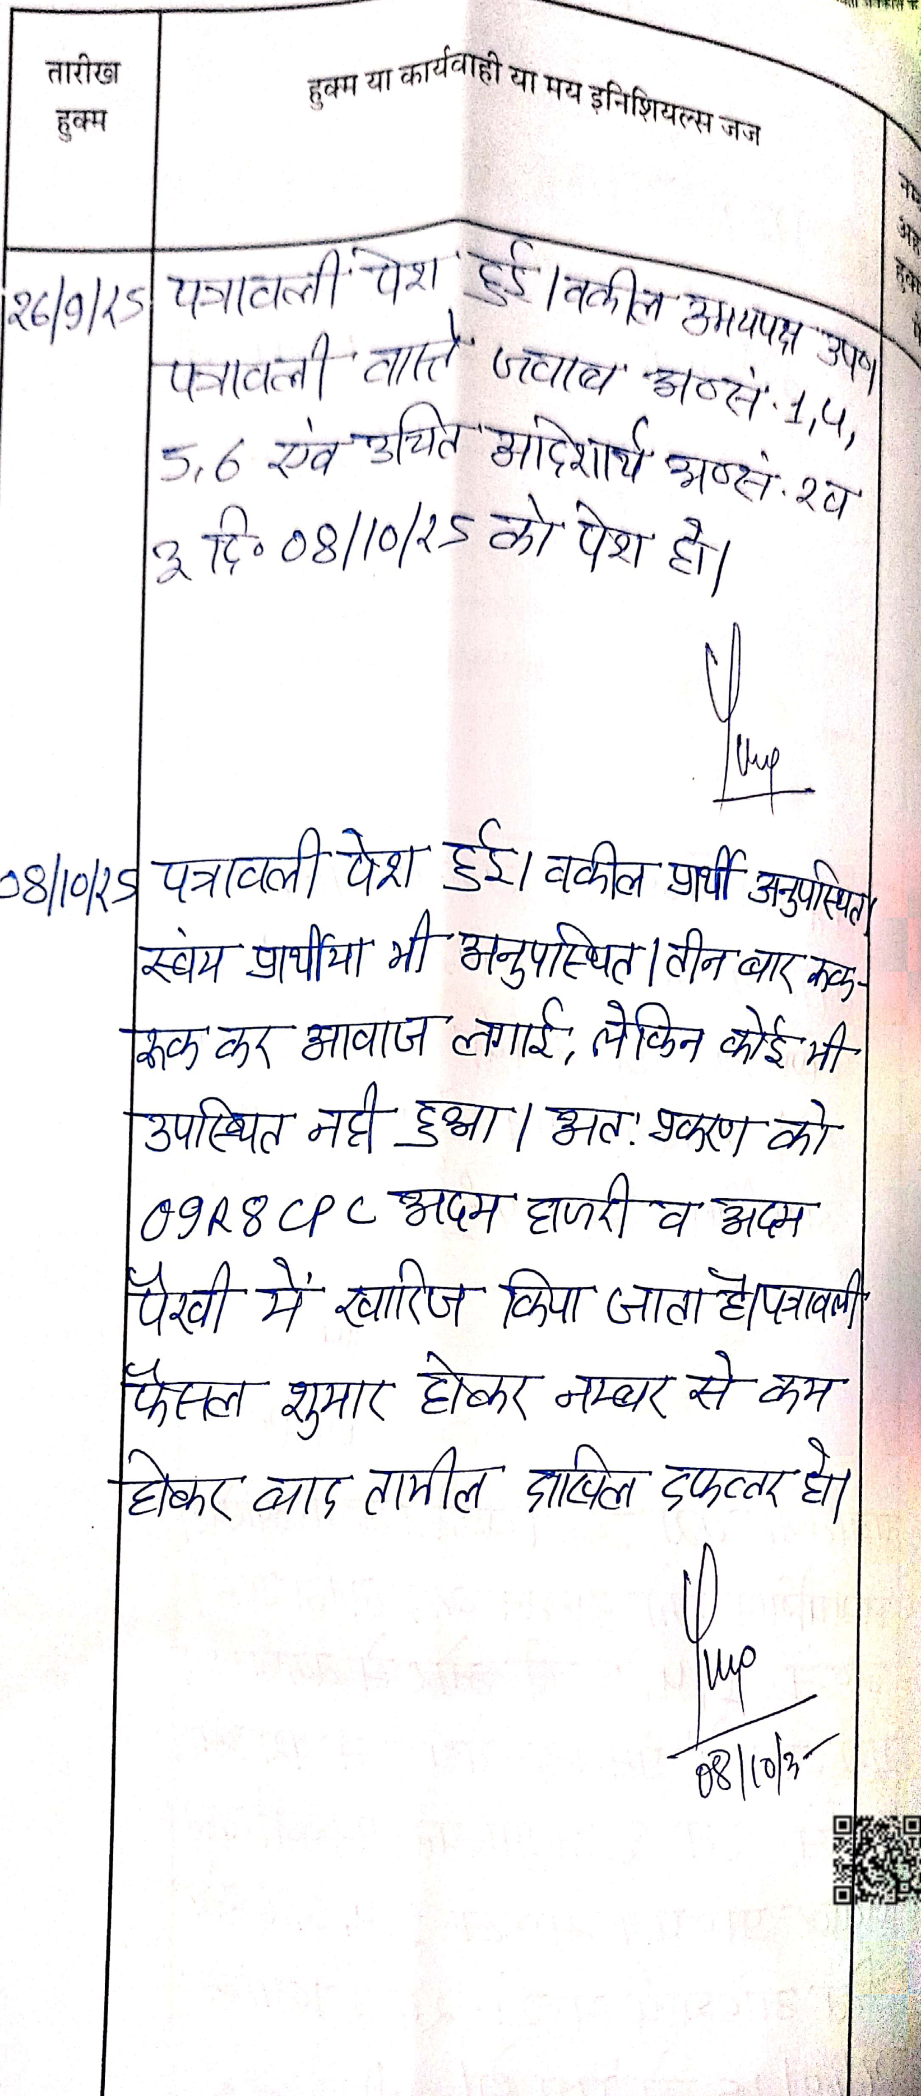 तारीख
हुक्म
हुक्म या कार्यवाही या मय इनिशियल्स जज
26/9/25 पत्रावली पेश हुई। वकील उभयपक्ष उप०।
पत्रावली वास्ते जवाब अ०सं. 1,4,
5,6 एंव उचित आदेशार्थ अ०सं. 2 व
3 दि० 08/10/25 को पेश हो।
08/10/25 पत्रावली पेश हुई। वकील प्रार्थी अनुपस्थित।
स्वंय प्रार्थीया भी अनुपस्थित। तीन बार रूक-
रूक कर आवाज लगाई, लेकिन कोई भी
उपस्थित नही हुआ। अत: प्रकरण को
O9R8 CPC अदम हाजरी व अदम
पैरवी में खारिज किया जाता है। पत्रावली
फैसल शुमार होकर नम्बर से कम
होकर बाद तामील दाखिल दफ्तर हो।
08/10/25